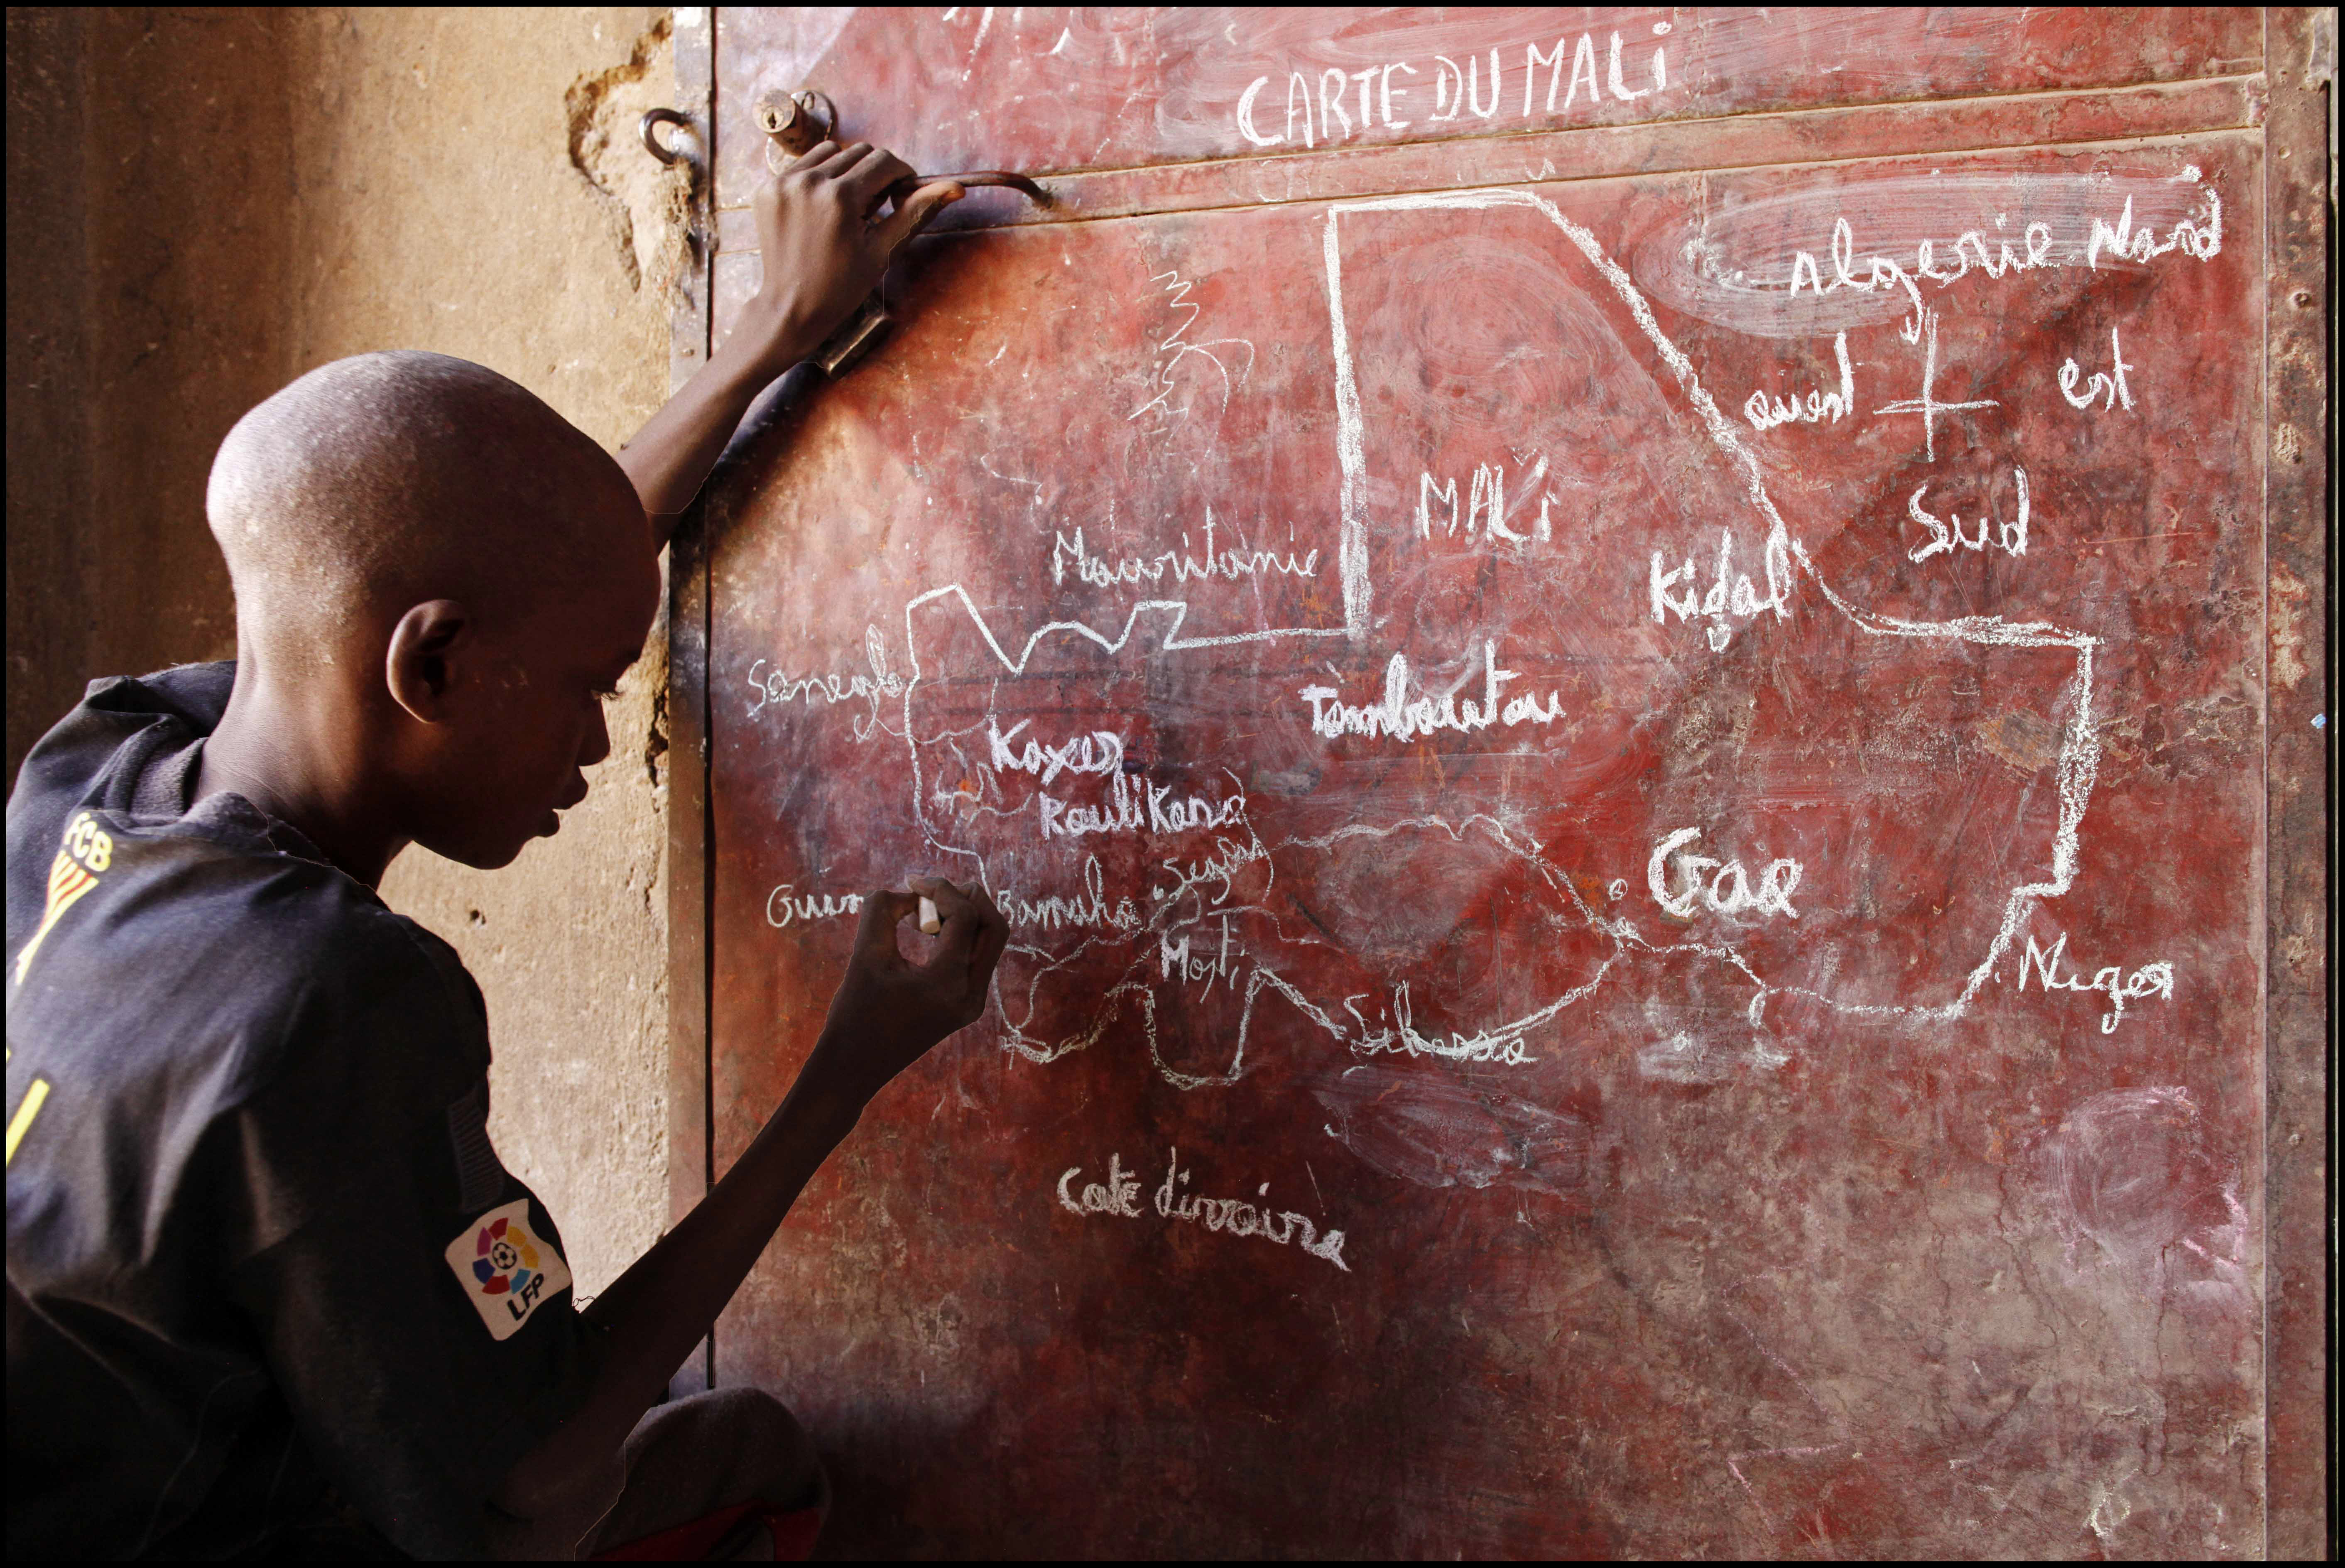 CARTE DU MALi
Algerie Nord
ouest
est
Sud
MALi
Mauritanie
Kidal
Senegal
Tombouctou
Kayes
Koulikoro
Gao
Segou
Bamako
Mopti
Niger
Sikasso
Cote d'ivoire
FCB
LFP